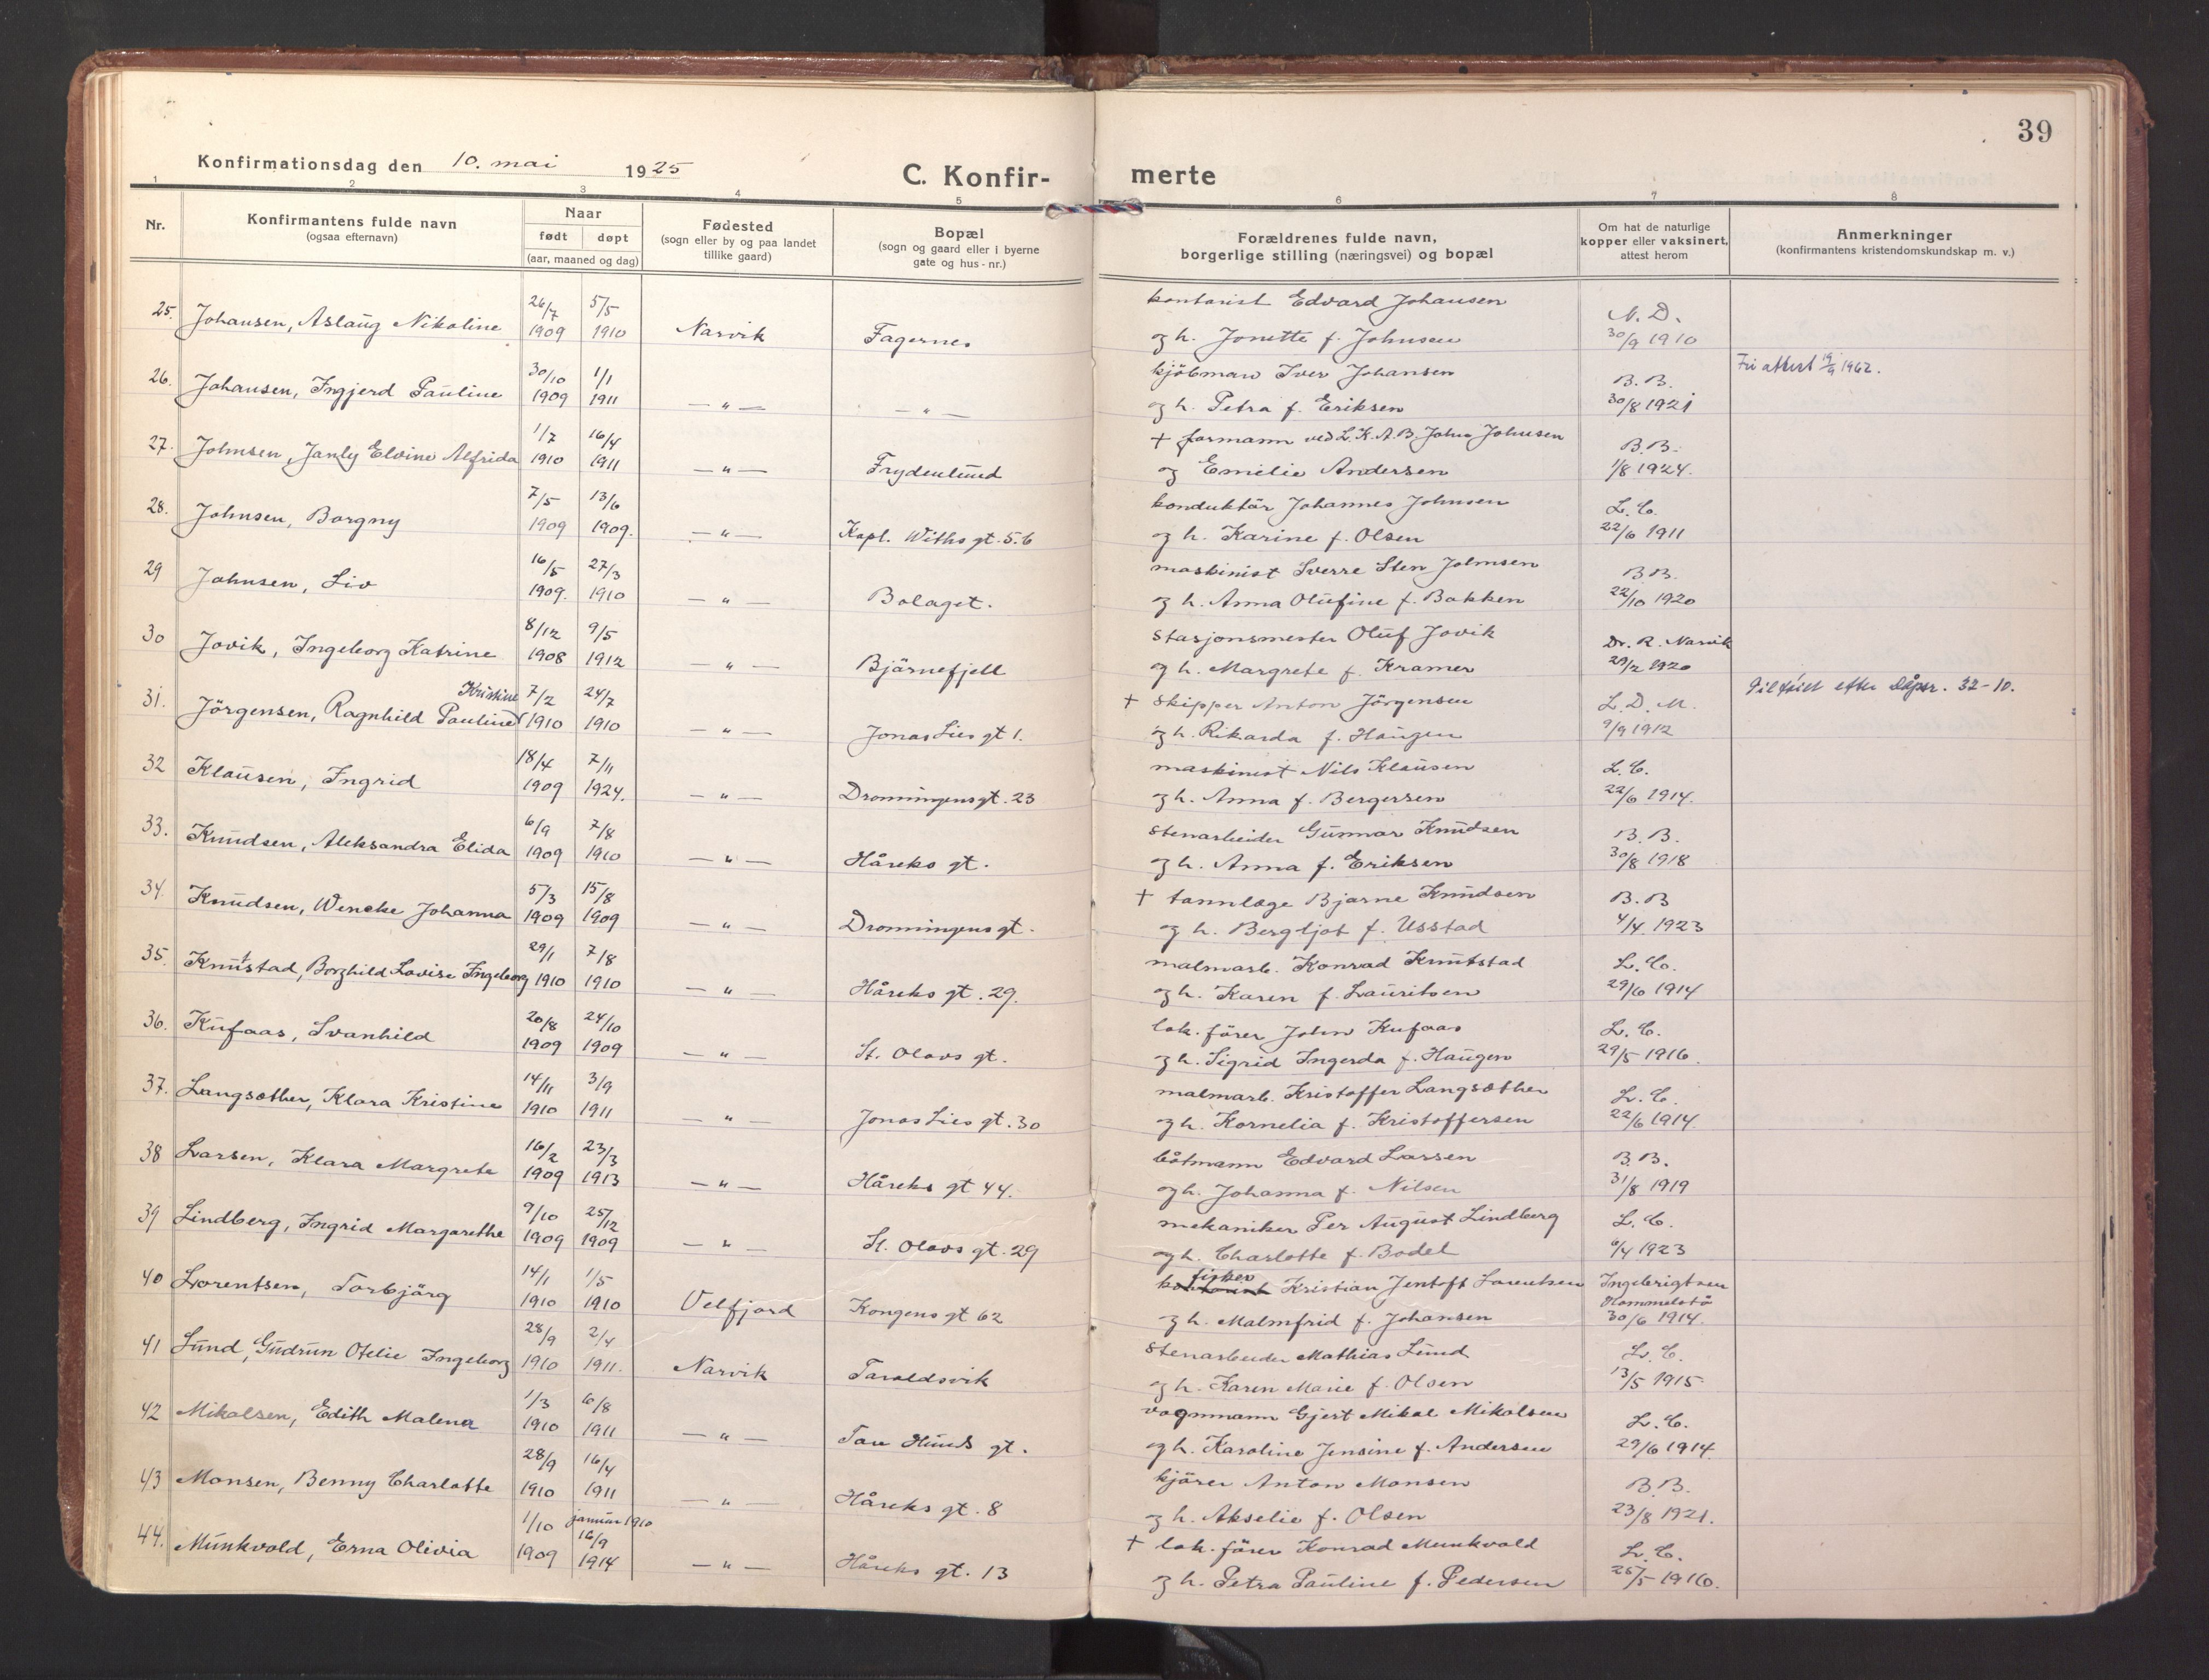 39
Konfirmationsdag den 10. mai 1925
C. Konfir- merte
1 2 3 4 5 6 7 8
Nr.
Konfirmantens fulde navn
(ogsaa efternavn)
Naar
født døpt
(aar, maaned og dag)
Fødested
(sogn eller by og paa landet
tillike gaard)
Bopæl
(sogn og gaard eller i byerne
gate og hus-nr.)
Forældrenes fulde navn,
borgerlige stilling (næringsvei) og bopæl
Om hat de naturlige
kopper eller vaksinert,
attest herom
Anmerkninger
(konfirmantens kristendomskundskap m. v.)
25. Johansen, Aslaug Nikoline 26/7 1909 5/5 1910 Narvik Fagernes
kontorist Edvard Johansen N. D.
og h. Jonette f. Johnsen 30/9 1910
26. Johansen, Ingjerd Pauline 30/10 1909 1/1 1911 — " — — " —
kjöbmann Iver Johansen B. B. Fri attest 19/9 1962.
og h. Petra f. Eriksen 30/8 1921
27. Johnsen, Janly Elvine Alfrida 1/7 1910 16/4 1911 — " — Frydenlund
+ formann ved L.K.A.B. Johs Johnsen B.B.
og Emelie Andersen 1/8 1924.
28. Johnsen, Borgny 7/5 1909 13/6 1909. — " — Kapl. Withs gt. 5.b
konduktör Johannes Johnsen L. C.
og h. Karine f. Olsen 22/6 1911
29 Johnsen, Liv 16/5 1909. 27/3 1910 — " — Bolaget.
maskinist Sverre Sten Johnsen B.B.
og h. Anna Olufine f. Bakken 22/10 1920
30 Jovik, Ingeborg Katrine 8/12 1908 9/5 1912 — " — Bjärnefjell
stasjonsmester Oluf Jovik Dr. R. Narvik
og h. Margrete f. Kramer 29/2 1920
31. Jörgensen, Ragnhild Pauline Kristine 7/2 1910 24/7 1910 — " — Jonas Lies gt 1.
+ skipper Anton Jörgensen L. D. M. Tilföiet efter dåpsr. 32-10.
og h. Rikarda f. Haugen 9/9 1912
32 Klausen, Ingrid 18/4 1909 7/11 1924. — " — Dronningensgt. 23
maskinist Nils Klausen L. C.
og h. Anna f. Bergersen 22/6 1914.
33. Knudsen, Aleksandra Elida 6/9 1909 7/8 1910 — " — Håreks gt.
stenarbeider Gunnar Knudsen B. B.
og h. Anna f. Eriksen 30/8 1918
34. Knudsen, Wencke Johanna 5/3 1909 15/8 1909 — " — Dronningens gt.
+ tannlæge Bjarne Knudsen B. B
og h. Bergljot f. Usstad 4/4. 1923
35. Knutstad, Borghild Lovise Ingeborg 29/1 1910 7/8 1910 — " — Håreks gt. 29.
malmarb. Konrad Knutstad L. C.
og h. Karen f. Lauritsen 29/6 1914
36. Kufaas, Svanhild 20/8 1909 24/10 1909 — " — St. Olavs gt.
lok. förer John Kufaas L. C.
og h. Sigrid Ingerda f. Haugen 29/5 1916.
37. Langsæther, Klara Kristine 14/11 1910 3/9 1911 — " — Jonas Lies gt. 30
malmarb. Kristoffer Langsæther L. C.
og h. Kornelia f. Kristoffersen 22/6 1914.
38 Larsen, Klara Margrete 16/2 1909 23/3 1913 — " — Håreks gt 44.
båtmann Edvard Larsen B. B.
og h. Johanna f. Nilsen 31/8 1919
39 Lindberg, Ingrid Margarethe 9/10 1909 25/12 1909 — " — St. Olavs gt. 29
mekaniker Per August Lindberg L. C.
og h. Charlotte f. Bodel 6/4 1923
40 Lorentsen, Torbjörg 14/1 1910 1/5 1910 Velfjord Kongens gt 62
fisker Kristian Jentoft Lorentsen Ingebrigtsen
Hommelstö
og h. Malmfrid f. Johansen 30/6 1914.
41 Lund, Gudrun Otelie Ingeborg 28/9 1910 2/4 1911. Narvik Taraldsvik
stenarbeider Mathias Lund L. C.
og h. Karen Marie f. Olsen 13/5 1915.
42 Mikalsen, Edith Malena 1/3 1910 6/8 1911 — " — Tore Hunds gt.
vognmann Gjert Mikal Mikalsen L. C.
og h. Karoline Jensine f. Andersen 29/6 1914.
43 Monsen, Benny Charlotte 28/9 1910 16/4 1911 — " — Håreks gt. 8
kjörer Anton Monsen B. B.
og h. Akselie f. Olsen 23/8 1921.
44. Munkvold, Erna Olivia 1/10 1909 januar 1910 16/9 1914 — " — Håreks gt. 13
+ lok. förer Konrad Munkvold L. C.
og h. Petra Pauline f. Pedersen 25/5 1916.